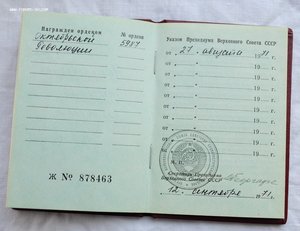 Награжден орденом
№ ордена
Октябрьской
Революции
5987
Ж № 878463
Указом Президиума Верховного Совета СССР
от 27 августа 1971 г.
от 19 г.
от 19 г.
от 19 г.
от 19 г.
от 19 г.
от 19 г.
от 19 г.
М. П.
Секретарь Президиума
Верховного Совета СССР
12 сентября 1971 г.